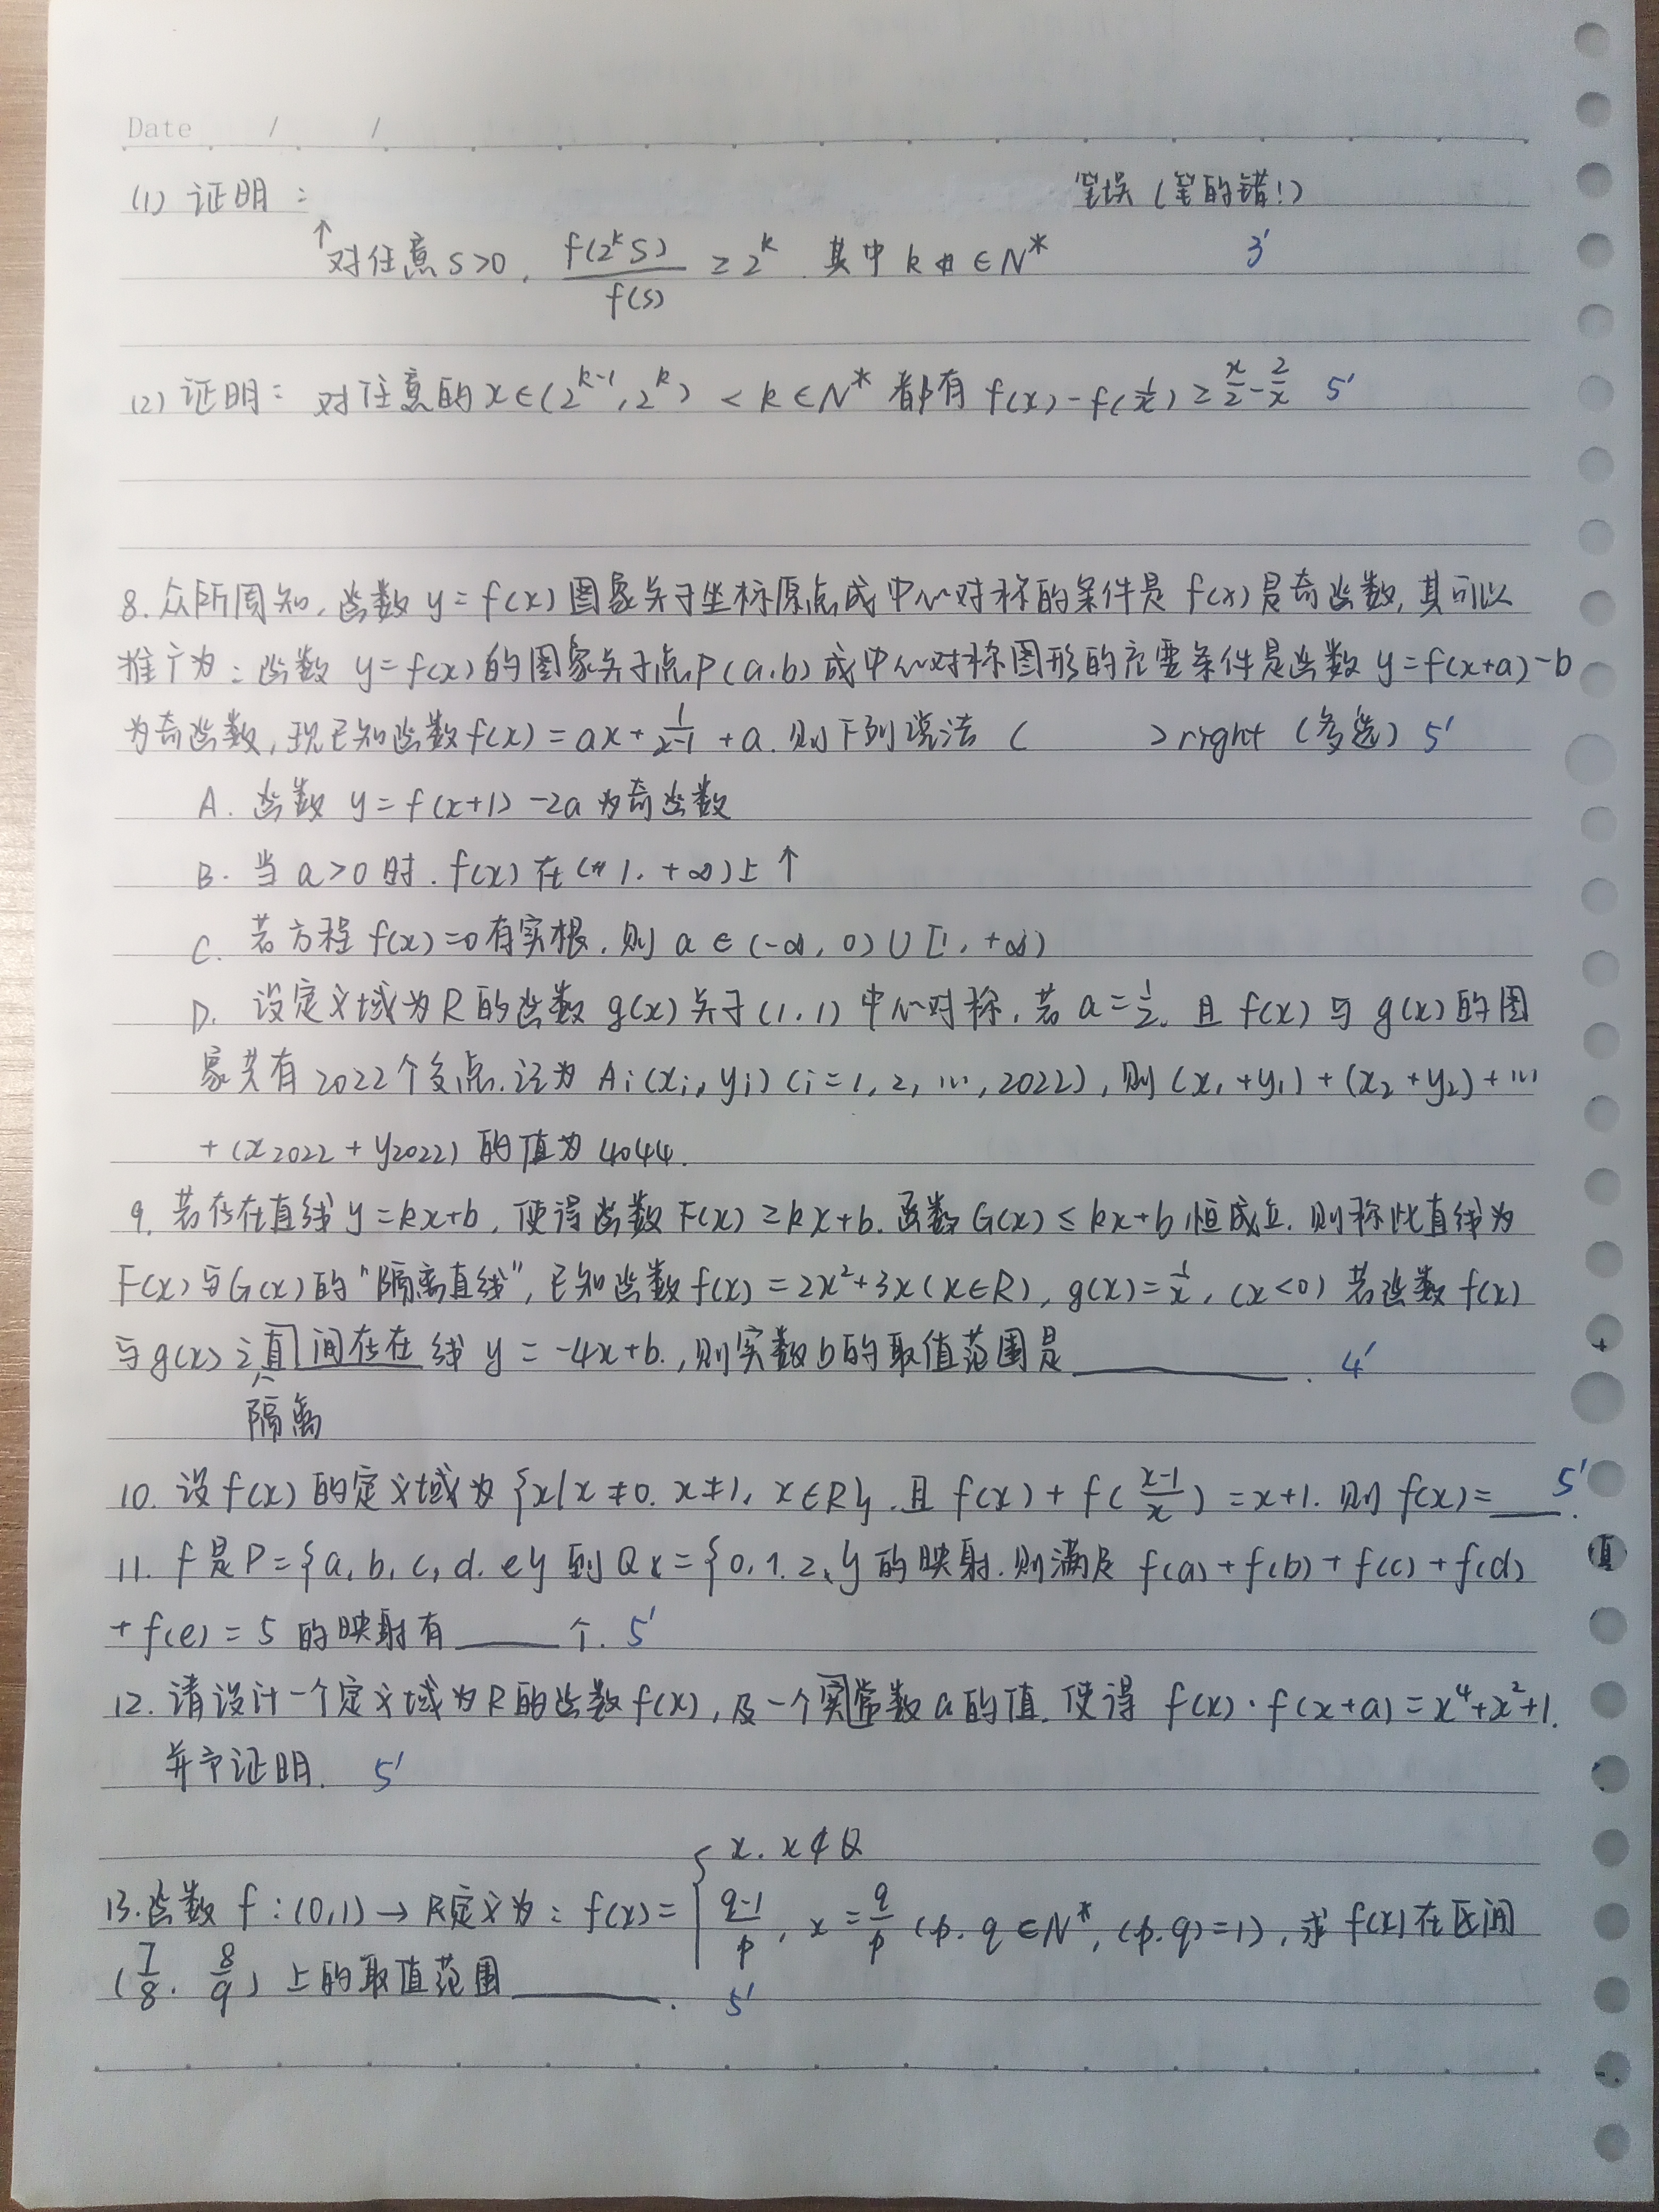 Date / /
(1) 证明： 笔误（笔的错！）
↑对任意 s>0, f(2^k s)/f(s) ≥ 2^k. 其中 k ∈ N* 3'
(2) 证明： 对任意的 x∈(2^{k-1}, 2^k) < k∈N* 都有 f(x)-f(1/x) ≥ x/2 - 2/x 5'
8. 众所周知, 函数 y=f(x) 图象关于坐标原点成中心对称的条件是 f(x) 是奇函数, 其可以
推广为：函数 y=f(x) 的图象关于点P(a,b) 成中心对称图形的充要条件是函数 y=f(x+a)-b
为奇函数, 现已知函数 f(x)=ax+1/(x-1)+a. 则下列说法 ( )right (多选) 5'
A. 函数 y=f(x+1)-2a 为奇函数
B. 当 a>0 时. f(x) 在(1, +∞)上↑
C. 若方程 f(x)=0 有实根, 则 a∈(-∞, 0)∪[1, +∞)
D. 设定义域为R的函数 g(x) 关于(1,1) 中心对称, 若 a=1/2, 且 f(x) 与 g(x) 的图
象共有 2022 个交点. 记为 Ai(xi, yi) (i=1, 2, …, 2022), 则 (x₁+y₁)+(x₂+y₂)+…
+(x₂₀₂₂+y₂₀₂₂) 的值为 4044.
9. 若存在直线 y=kx+b, 使得函数 F(x)≥kx+b. 函数 G(x)≤kx+b 恒成立. 则称此直线为
F(x)与G(x)的"隔离直线", 已知函数 f(x)=2x²+3x(x∈R), g(x)=1/x, (x<0) 若函数 f(x)
与g(x)之直间存在线 y=-4x+b., 则实数b的取值范围是______. 4'
隔离
10. 设 f(x) 的定义域为 {x|x≠0. x≠1, x∈R}. 且 f(x)+f((x-1)/x)=x+1. 则 f(x)=___. 5'
11. f 是 P={a, b, c, d, e} 到 Q={0, 1, 2} 的映射. 则满足 f(a)+f(b)+f(c)+f(d)
+f(e)=5 的映射有____个. 5'
12. 请设计一个定义域为R的函数 f(x), 及一个实常数 a 的值. 使得 f(x)·f(x+a)=x⁴+x²+1.
并予证明. 5'
x. x∉Q
13. 函数 f:(0,1)→R定义为：f(x)={ (q-1)/p, x=q/p (p, q∈N*, (p,q)=1), 求 f(x) 在区间
(7/8, 8/9) 上的取值范围______. 5'